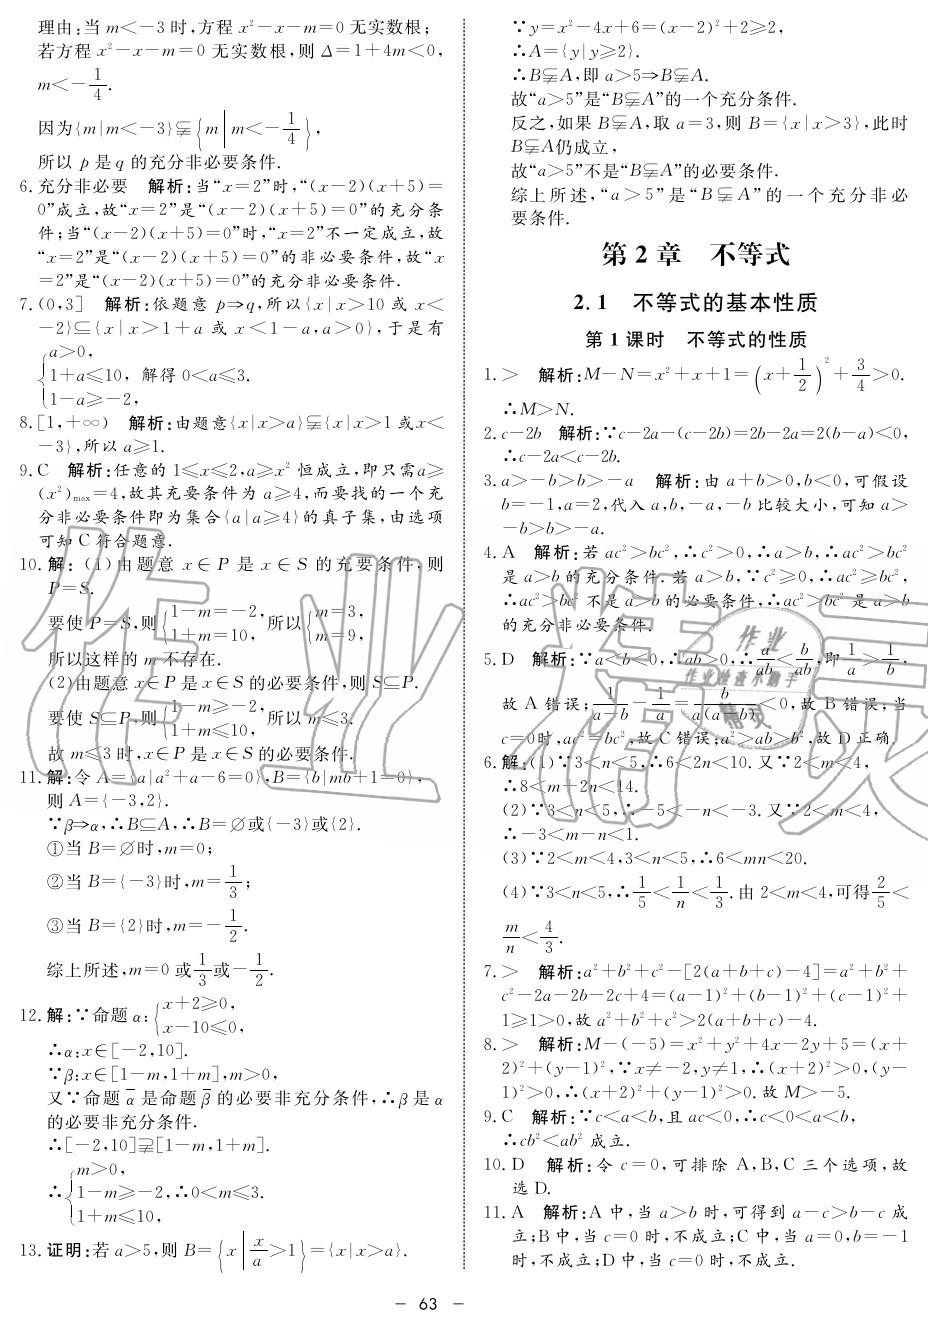 理由:当 m＜－3 时,方程 x²－x－m＝0 无实数根;
若方程 x²－x－m＝0 无实数根,则 Δ＝1＋4m＜0,
m＜－1/4.
因为{m|m＜－3}⫋{m|m＜－1/4},
所以 p 是 q 的充分非必要条件.
6.充分非必要　解析:当“x＝2”时,“(x－2)(x＋5)＝
0”成立,故“x＝2”是“(x－2)(x＋5)＝0”的充分条
件;当“(x－2)(x＋5)＝0”时,“x＝2”不一定成立,故
“x＝2”是“(x－2)(x＋5)＝0”的非必要条件,故“x
＝2”是“(x－2)(x＋5)＝0”的充分非必要条件.
7.(0,3]　解析:依题意 p⇒q,所以{x|x＞10 或 x＜
－2}⊆{x|x＞1＋a 或 x＜1－a,a＞0},于是有
{a＞0,
1＋a≤10, 解得 0＜a≤3.
1－a≥－2,
8.[1,＋∞)　解析:由题意{x|x＞a}⫋{x|x＞1 或x＜
－3},所以 a≥1.
9.C　解析:任意的 1≤x≤2,a≥x² 恒成立,即只需a≥
(x²)max＝4,故其充要条件为 a≥4,而要找的一个充
分非必要条件即为集合{a|a≥4}的真子集,由选项
可知 C 符合题意.
10.解:(1)由题意 x∈P 是 x∈S 的充要条件,则
P＝S.
要使 P＝S,则{1－m＝－2, 1＋m＝10, 所以{m＝3, m＝9,
所以这样的 m 不存在.
(2)由题意 x∈P 是 x∈S 的必要条件,则 S⊆P.
要使 S⊆P,则{1－m≥－2, 1＋m≤10, 所以 m≤3.
故 m≤3 时,x∈P 是 x∈S 的必要条件.
11.解:令 A＝{a|a²＋a－6＝0},B＝{b|mb＋1＝0},
则 A＝{－3,2}.
∵β⇒α,∴B⊆A,∴B＝∅或{－3}或{2}.
①当 B＝∅时,m＝0;
②当 B＝{－3}时,m＝1/3;
③当 B＝{2}时,m＝－1/2.
综上所述,m＝0 或1/3或－1/2.
12.解:∵命题 α:{x＋2≥0, x－10≤0,
∴α:x∈[－2,10].
∵β:x∈[1－m,1＋m],m＞0,
又∵命题 α̅ 是命题 β̅ 的必要非充分条件,∴β 是 α
的必要非充分条件.
∴[－2,10]⫌[1－m,1＋m].
{m＞0,
∴ 1－m≥－2,∴0＜m≤3.
1＋m≤10,
13.证明:若 a＞5,则 B＝{x|x/a＞1}＝{x|x＞a}.
∵y＝x²－4x＋6＝(x－2)²＋2≥2,
∴A＝{y|y≥2}.
∴B⫋A,即 a＞5⇒B⫋A.
故“a＞5”是“B⫋A”的一个充分条件.
反之,如果 B⫋A,取 a＝3,则 B＝{x|x＞3},此时
B⫋A仍成立,
故“a＞5”不是“B⫋A”的必要条件.
综上所述,“a＞5”是“B⫋A”的一个充分非必
要条件.
第 2 章　不等式
2.1　不等式的基本性质
第 1 课时　不等式的性质
1.＞　解析:M－N＝x²＋x＋1＝(x＋1/2)²＋3/4＞0.
∴M＞N.
2.c－2b　解析:∵c－2a－(c－2b)＝2b－2a＝2(b－a)＜0,
∴c－2a＜c－2b.
3.a＞－b＞b＞－a　解析:由 a＋b＞0,b＜0,可假设
b＝－1,a＝2,代入 a,b,－a,－b 比较大小,可知 a＞
－b＞b＞－a.
4.A　解析:若 ac²＞bc²,∴c²＞0,∴a＞b,∴ac²＞bc²
是 a＞b 的充分条件.若 a＞b,∵c²≥0,∴ac²≥bc²,
∴ac²＞bc² 不是 a＞b 的必要条件,∴ac²＞bc² 是 a＞b
的充分非必要条件.
5.D　解析:∵a＜b＜0,∴ab＞0,∴a/ab＜b/ab,即1/a＞1/b,
故 A 错误;1/(a－b)－1/a＝b/(a(a－b))＜0,故 B 错误;当
c＝0时,ac²＝bc²,故 C 错误;a²＞ab＞b²,故 D 正确.
6.解:(1)∵3＜n＜5,∴6＜2n＜10.又∵2＜m＜4,
∴8＜m＋2n＜14.
(2)∵3＜n＜5,∴－5＜－n＜－3.又∵2＜m＜4,
∴－3＜m－n＜1.
(3)∵2＜m＜4,3＜n＜5,∴6＜mn＜20.
(4)∵3＜n＜5,∴1/5＜1/n＜1/3.由 2＜m＜4,可得2/5＜
m/n＜4/3.
7.＞　解析:a²＋b²＋c²－[2(a＋b＋c)－4]＝a²＋b²＋
c²－2a－2b－2c＋4＝(a－1)²＋(b－1)²＋(c－1)²＋
1≥1＞0,故 a²＋b²＋c²＞2(a＋b＋c)－4.
8.＞　解析:M－(－5)＝x²＋y²＋4x－2y＋5＝(x＋
2)²＋(y－1)²,∵x≠－2,y≠1,∴(x＋2)²＞0,(y－
1)²＞0,∴(x＋2)²＋(y－1)²＞0.故 M＞－5.
9.C　解析:∵c＜a＜b,且 ac＜0,∴c＜0＜a＜b,
∴cb²＜ab² 成立.
10.D　解析:令 c＝0,可排除 A,B,C 三个选项,故
选 D.
11.A　解析:A 中,当 a＞b 时,可得到 a－c＞b－c 成
立;B 中,当 c＝0 时,不成立;C 中,当 a＝0,b＝－1
时,不成立;D 中,当 c＝0 时,不成立.
－ 63 －
作业精灵
作业
作业检查小助手
精灵